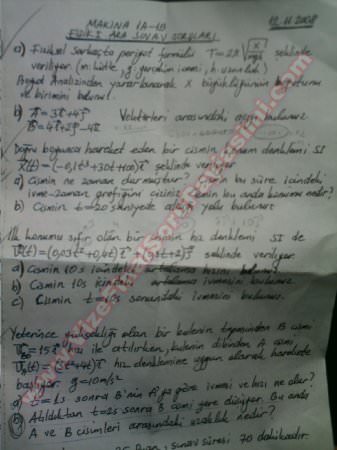 MAKINA 1A-1B
FİZİK I ARA SINAV SORULARI
12.11.2008
a) Fiziksel Sarkaçta periyot formülü T=2π√(x/mgh) şeklinde
veriliyor. (m: kütle, g: yerçekim ivmesi, h: uzunluk)
Boyut Analizinden yararlanarak X büyüklüğünün boyutunu
ve birimini bulunuz.
b) A=3i+4j Vektörleri arasındaki açıyı bulunuz
B=4i+2j-4k
Doğru boyunca hareket eden bir cismin konum denklemi SI
X(t)=(-0,1t³+30t+100)i şeklinde veriliyor
a) Cisim ne zaman durmuştur? Cismin bu süre içindeki
ivme-zaman grafiğini çiziniz. Cismin bu anda konumu nedir?
b) Cismin t=20 saniyede aldığı yolu bulunuz
İlk konumu sıfır olan bir cismin hız denklemi SI de
V(t)=(0,03t²+0,4t)i + (t+2)j şeklinde veriliyor.
a) Cismin 10s içindeki ortalama hızını bulunuz
b) Cismin 10s içindeki ortalama ivmesini bulunuz.
c) Cismin t=10s sonundaki ivmesini bulunuz.
Yeterince yüksekliği olan bir kulenin tepesinden B cismi
hızı ile atılırken, kulenin dibinden A cismi
hız denklemine uygun olarak harekete
başlıyor. g=10m/s²
a) t=1s sonra B'nin A'ya göre ivmesi ve hızı ne olur?
b) Atıldıktan t=2s sonra B cismi yere düşüyor. Bu anda
A ve B cisimleri arasındaki uzaklık nedir?
sınav süresi 70 dakikadır.